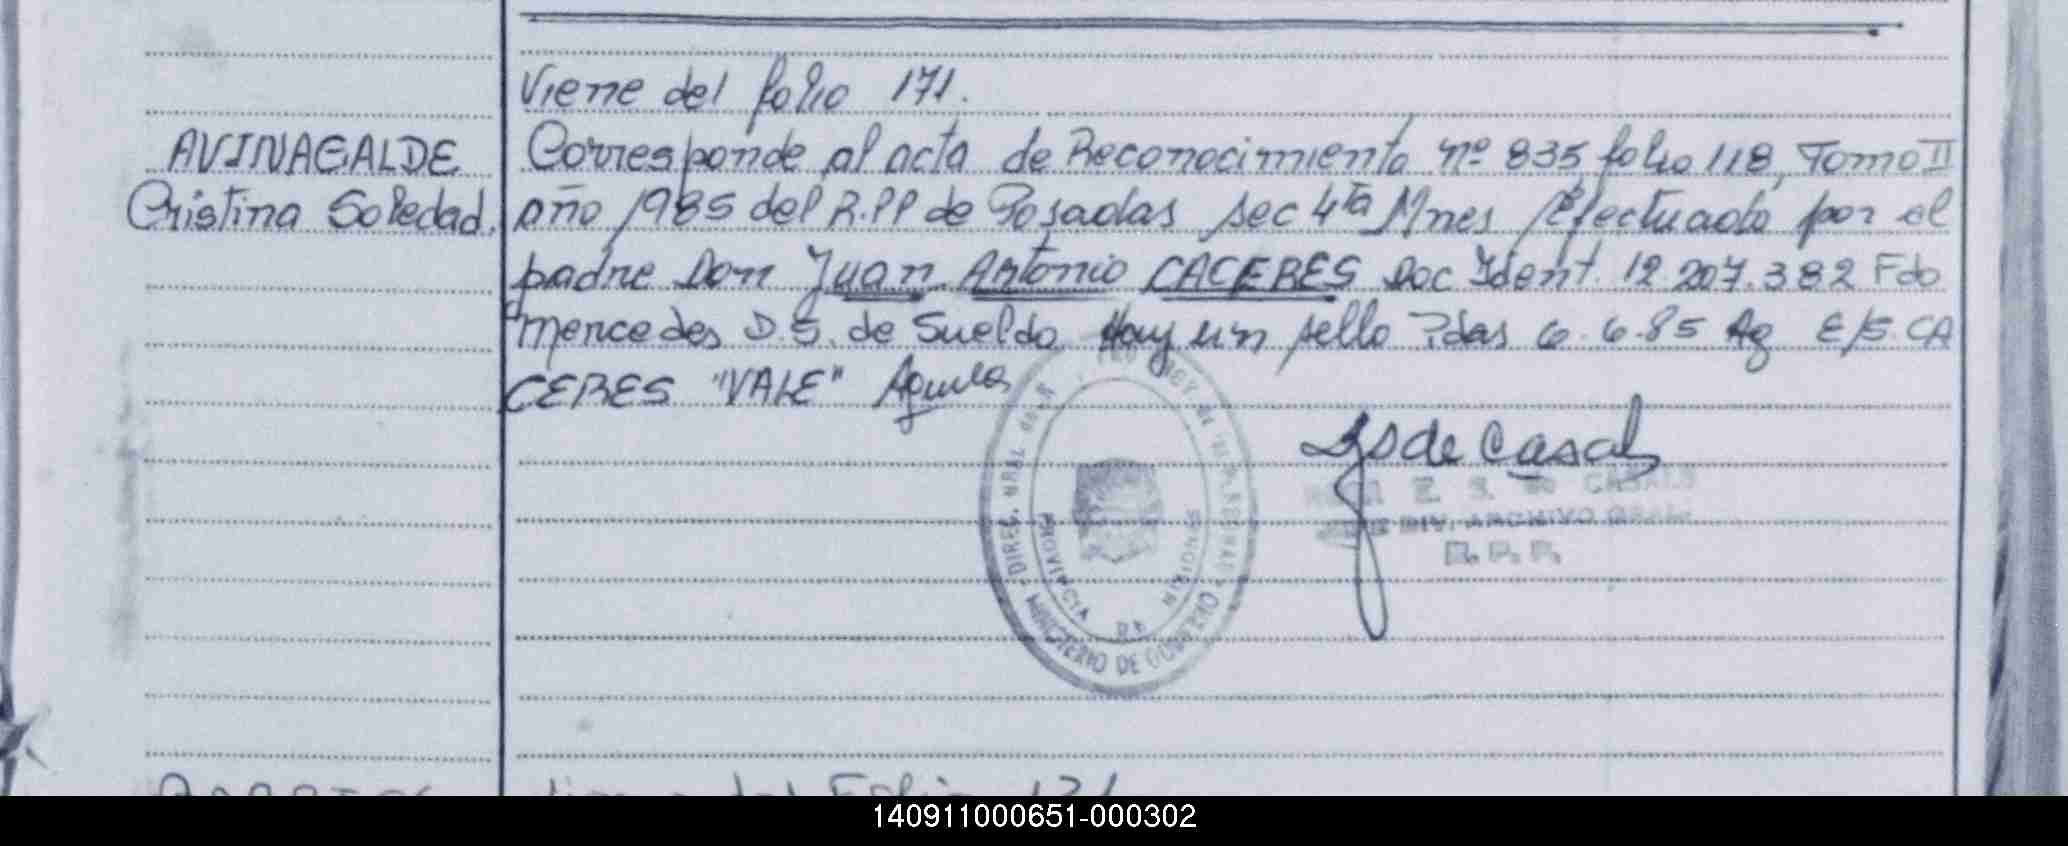 Viene del folio 171.
AVINAGALDE
Cristina Soledad,
Corresponde al acta de Reconocimiento nº 835, folio 118, Tomo II
año 1985 del R.PP de Posadas sec 4ta Mnes / Efectuado por el
padre Don Juan Antonio CACERES Doc Ident. 12.207.382 Fdo
Mercedes D.S. de Sueldo Hay un sello Pdas 6.6.85 Ag E/S. CA
CERES "VALE" Aguila
S de Casal
E. S. de CASALS
DIV. ARCHIVO GRAL.
R. P. P.
MINISTERIO DE GOBIERNO
PROVINCIA DE MISIONES
140911000651-000302